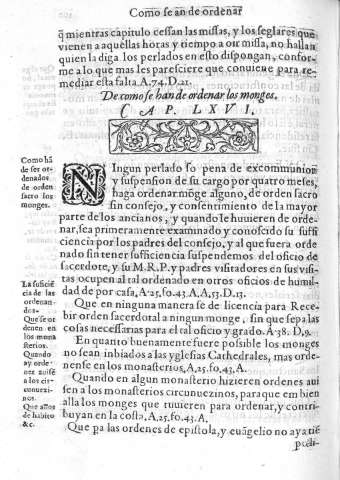 Como se an de ordenar
q̃ mientras capitulo cessan las missas, y los seglares que
vienen a aquellas horas y tiempo a oir missa, no hallan
quien la diga los perlados en esto dispongan, confor-
me a lo que mas les paresciere que conuiene para re-
mediar esta falta A.74.D.21.
De como se han de ordenar los monges.
CAP. LXVI.
Como hã
de ser or-
denados
de orden
sacro los
monges.
NIngun perlado so pena de excommunion
y suspension de su cargo por quatro meses,
haga ordenar mõge alguno, de orden sacro
sin consejo, y consentimiento de la mayor
parte de los ancianos, y quando le huuieren de orde-
nar, sea primeramente examinado y conoscido su suffi
ciencia por los padres del consejo, y al que fuera orde
nado sin tener sufficiencia suspendemos del oficio de
sacerdote, y su M.R.P. y padres visitadores en sus visi-
tas ocupen al tal ordenado en otros oficios de humil-
dad de por casa, A.25.fo.43.A.A,53.D.13.
La sufficiẽ
cia de las
ordenan-
dos.
Que en ninguna manera se de licencia para Rece-
bir orden sacerdotal a ningun monge, sin que sepa las
cosas necessarias para el tal oficio y grado. A.38. D,9.
Que se or
denen en
los mona
sterios.
En quanto buenamente fuere possible los monges
no sean inbiados a las yglesias Cathedrales, mas orde-
nense en los monasterios, A,25.fo.43,A.
Quando
ay orde-
nez auisẽ
a los cir-
cunuezi-
nos.
Quando en algun monasterio hizieren ordenes aui
sen a los monasterios circunuezinos, para que em bien
alla los monges que tuuieren para ordenar, y contri-
buyan en la costa, A.25.fo.43.A.
Que años
de habito
&c.
Que pa las ordenes de epistola, y euãgelio no aya tiẽ